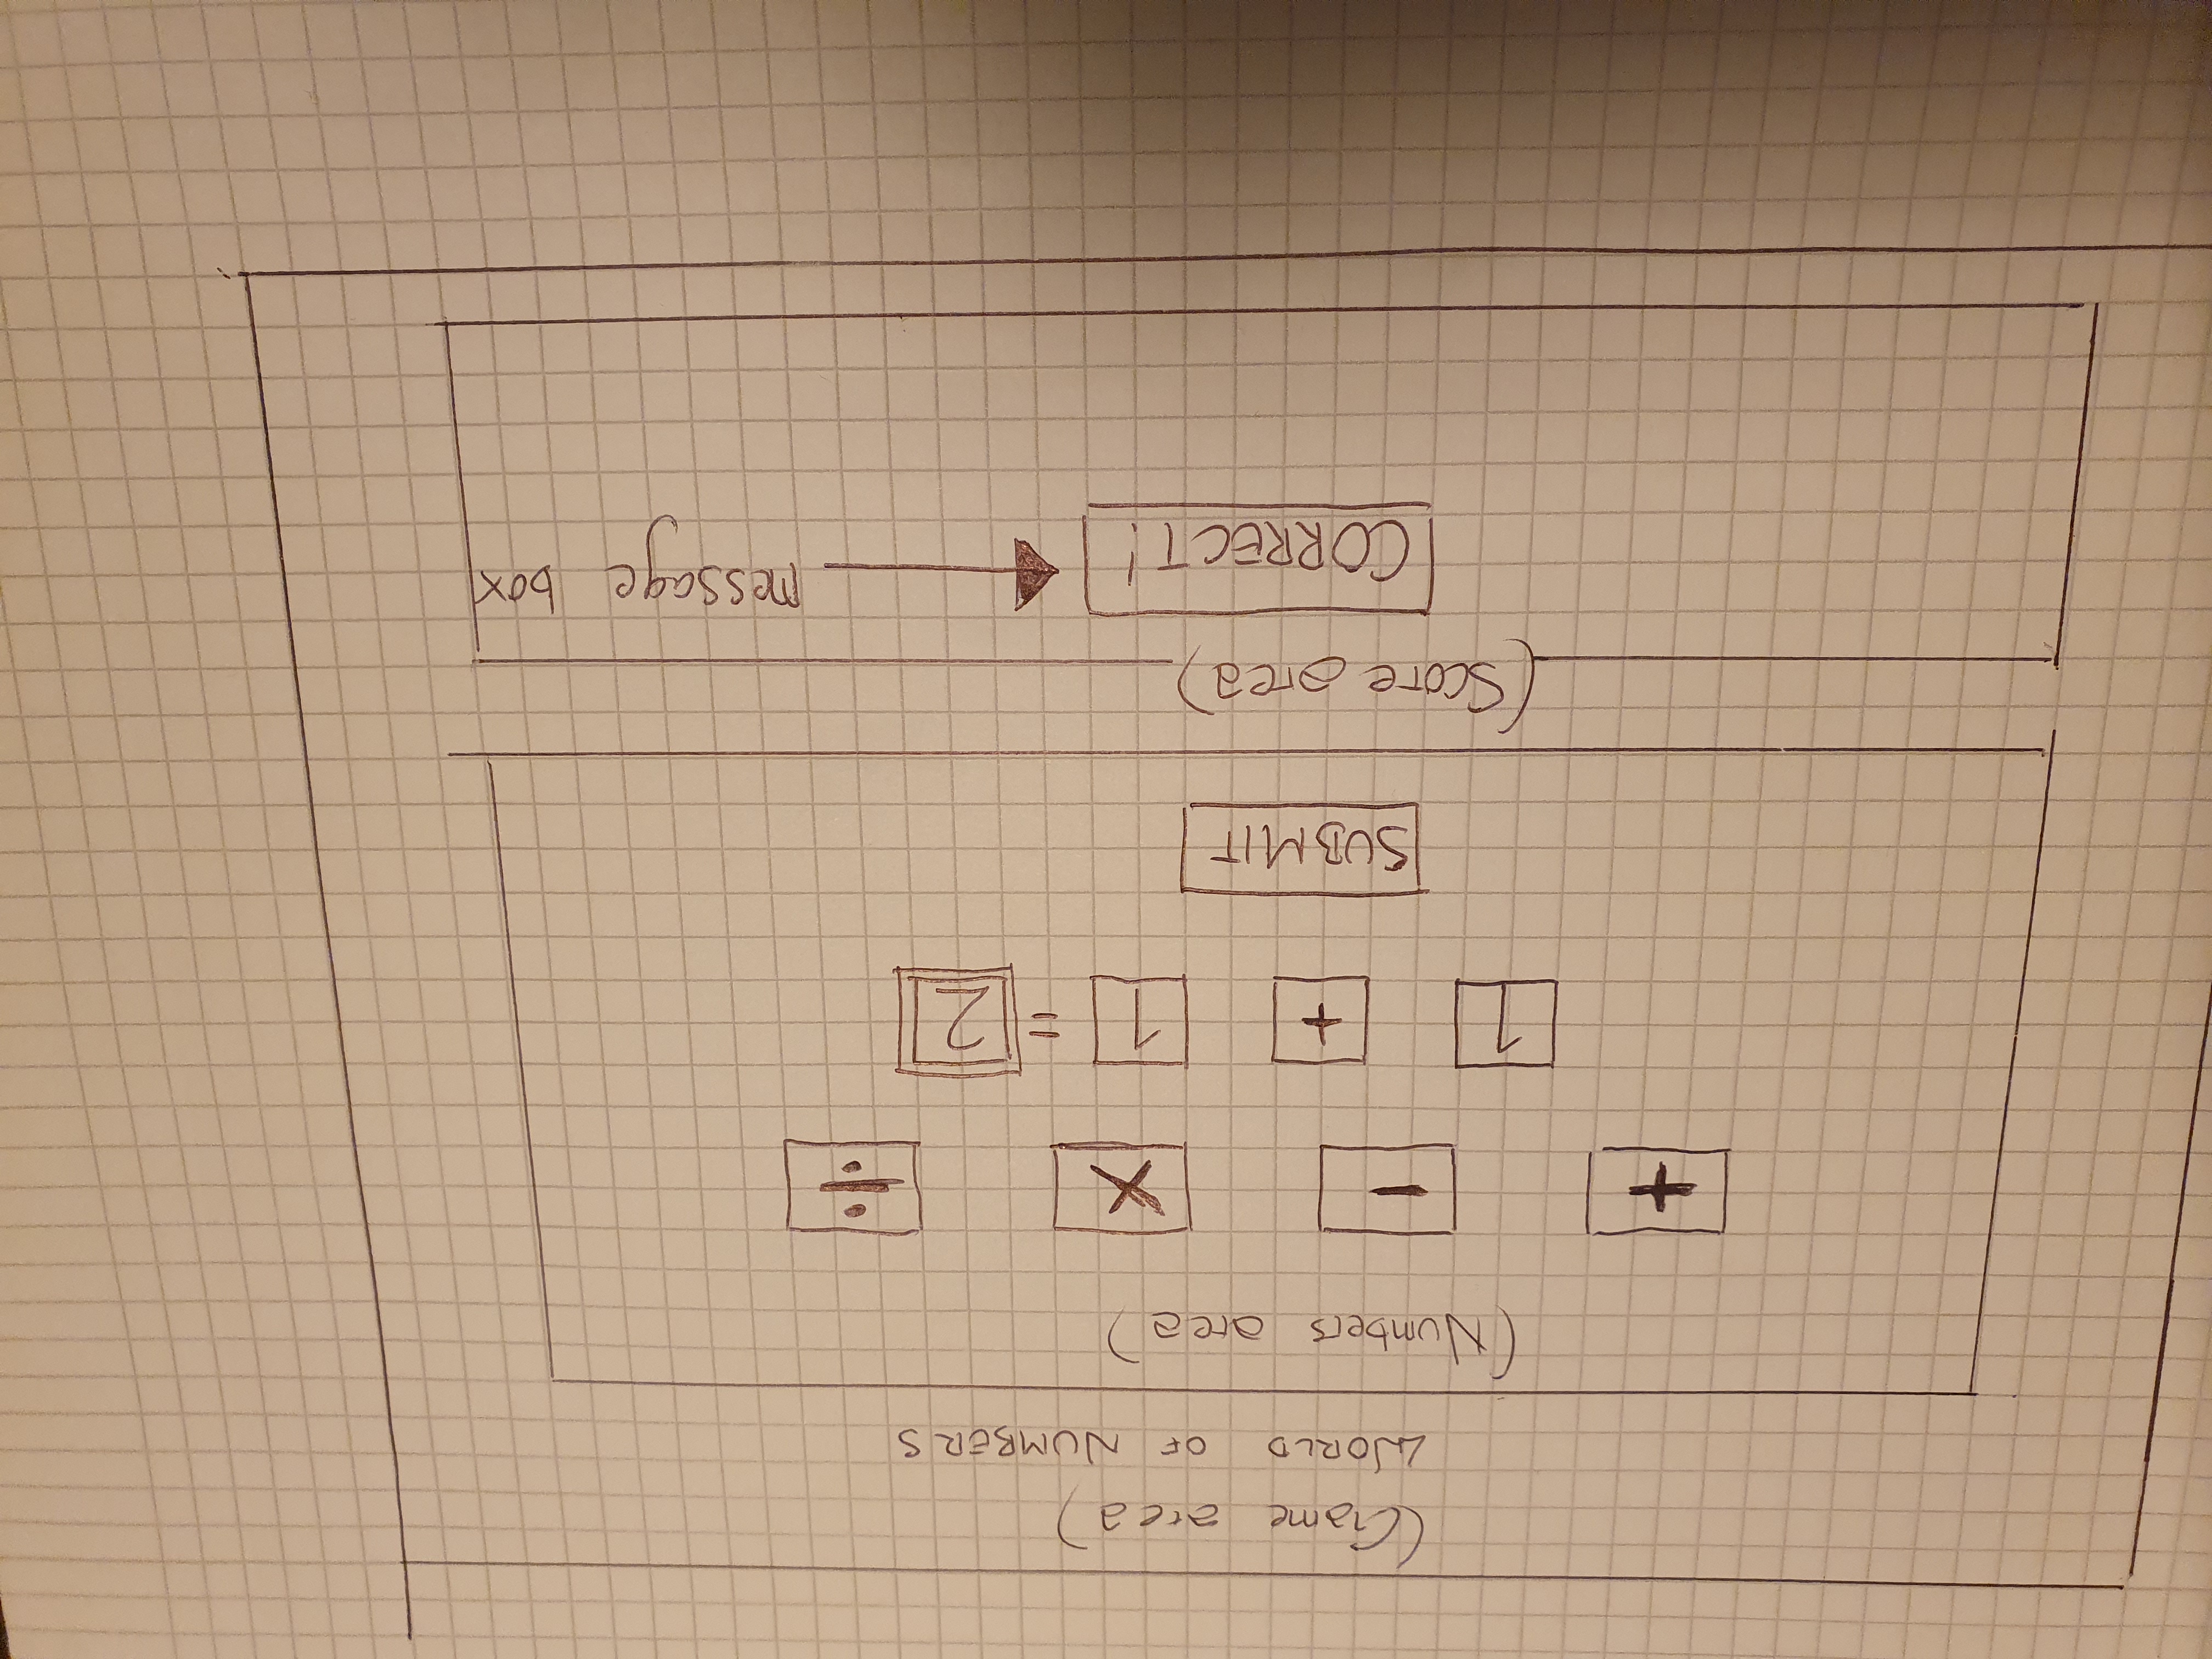 (Game area)
WORLD OF NUMBERS
(Numbers area)
+ - × ÷
1 + 1 = 2
SUBMIT
(Score area)
CORRECT!
message box